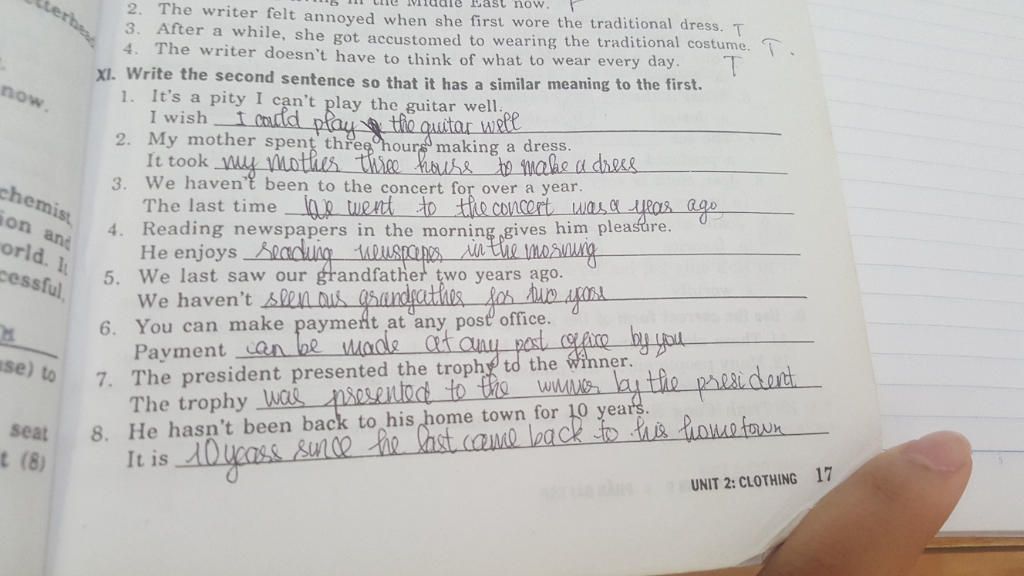 etterhead
ing in the Middle East now. F
2. The writer felt annoyed when she first wore the traditional dress. T
3. After a while, she got accustomed to wearing the traditional costume. T.
4. The writer doesn't have to think of what to wear every day. T
XI. Write the second sentence so that it has a similar meaning to the first.
now,
1. It's a pity I can't play the guitar well.
I wish I could play the guitar well
2. My mother spent three hours making a dress.
It took my mother three hours to make a dress
3. We haven't been to the concert for over a year.
chemist
The last time we went to the concert was a year ago
ion and
4. Reading newspapers in the morning gives him pleasure.
orld. It
He enjoys reading newspaper in the morning
cessful,
5. We last saw our grandfather two years ago.
We haven't seen our grandfather for two years
6. You can make payment at any post office.
Payment can be made at any post office by you
se) to
7. The president presented the trophy to the winner.
The trophy was presented to the winner by the president
seat
8. He hasn't been back to his home town for 10 years.
t (8)
It is 10 years since he last came back to his hometown
UNIT 2: CLOTHING 17